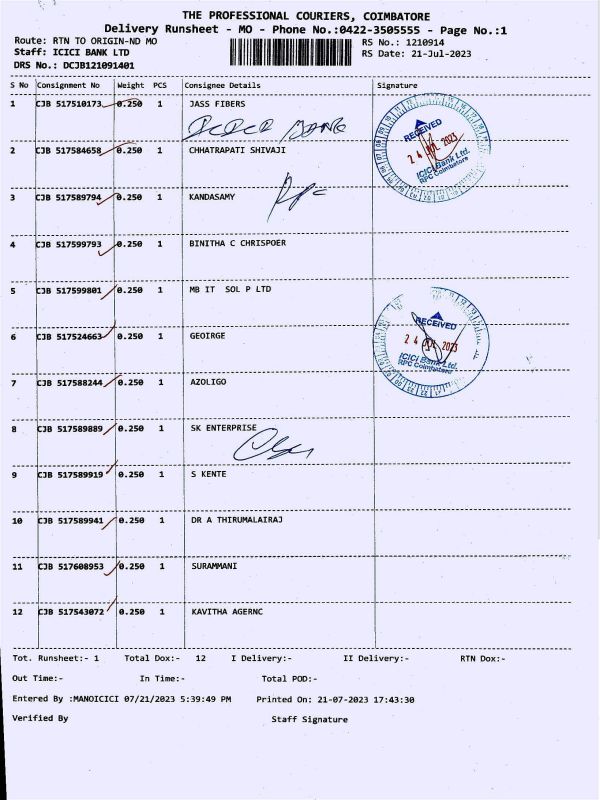 THE PROFESSIONAL COURIERS, COIMBATORE
Delivery Runsheet - MO - Phone No.:0422-3505555 - Page No.:1
Route: RTN TO ORIGIN-ND MO
RS No.: 1210914
Staff: ICICI BANK LTD
RS Date: 21-Jul-2023
DRS No.: DCJB121091401
S No Consignment No Weight PCS Consignee Details Signature
1 CJB 517510173 0.250 1 JASS FIBERS
ICICI BANK
RECEIVED
24 JUL 2023
ICICI Bank Ltd.
RPC Coimbatore
2 CJB 517584658 0.250 1 CHHATRAPATI SHIVAJI
3 CJB 517589794 0.250 1 KANDASAMY
RPC
4 CJB 517599793 0.250 1 BINITHA C CHRISPOER
5 CJB 517599801 0.250 1 MB IT SOL P LTD
RECEIVED
24 JUL 2023
ICICI Bank Ltd.
RPC Coimbatore
6 CJB 517524663 0.250 1 GEOIRGE
7 CJB 517588244 0.250 1 AZOLIGO
8 CJB 517589889 0.250 1 SK ENTERPRISE
9 CJB 517589919 0.250 1 S KENTE
10 CJB 517589941 0.250 1 DR A THIRUMALAIRAJ
11 CJB 517608953 0.250 1 SURAMMANI
12 CJB 517543072 0.250 1 KAVITHA AGERNC
Tot. Runsheet:- 1 Total Dox:- 12 I Delivery:- II Delivery:- RTN Dox:-
Out Time:- In Time:- Total POD:-
Entered By :MANOICICI 07/21/2023 5:39:49 PM Printed On: 21-07-2023 17:43:30
Verified By Staff Signature